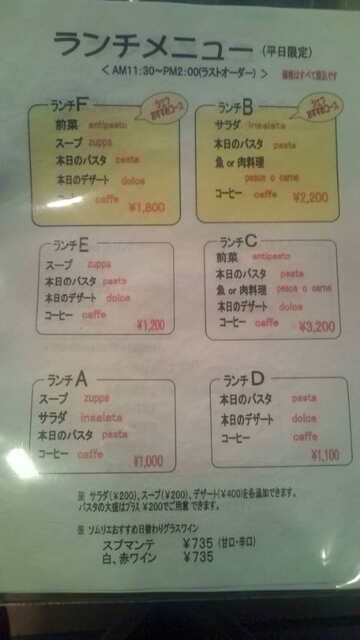 ランチメニュー (平日限定)
< AM11:30～PM2:00(ラストオーダー) > 価格はすべて税込です
ランチF
シェフおすすめコース
前菜 antipasto
スープ zuppa
本日のパスタ pasta
本日のデザート dolce
コーヒー caffe
¥1,800
ランチB
シェフおすすめコース
サラダ insalata
本日のパスタ pasta
魚 or 肉料理
pesce o carne
コーヒー caffe
¥2,200
ランチE
スープ zuppa
本日のパスタ pasta
本日のデザート dolce
コーヒー caffe
¥1,200
ランチC
前菜 antipasto
本日のパスタ pasta
魚 or 肉料理 pesce o carne
本日のデザート dolce
コーヒー caffe
¥3,200
ランチA
スープ zuppa
サラダ insalata
本日のパスタ pasta
コーヒー caffe
¥1,000
ランチD
本日のパスタ pasta
本日のデザート dolce
コーヒー caffe
¥1,100
※ サラダ(¥200)、スープ(¥200)、デザート(¥400)を各追加できます。
パスタの大盛はプラス¥200でご用意できます。
※ ソムリエおすすめ日替わりグラスワイン
スプマンテ ¥735 (甘口・辛口)
白、赤ワイン ¥735